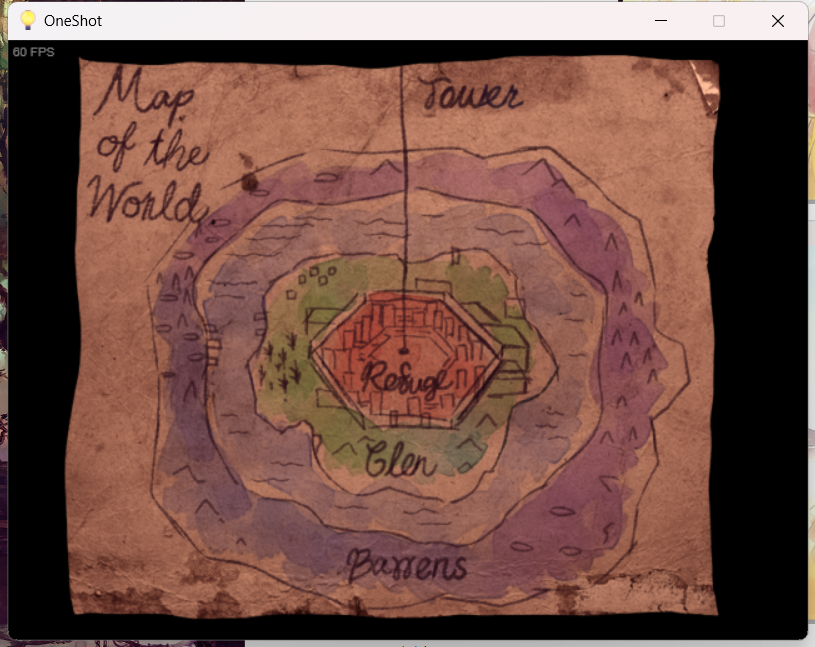 OneShot
60 FPS
Map
of the
World
Tower
Refuge
Glen
Barrens